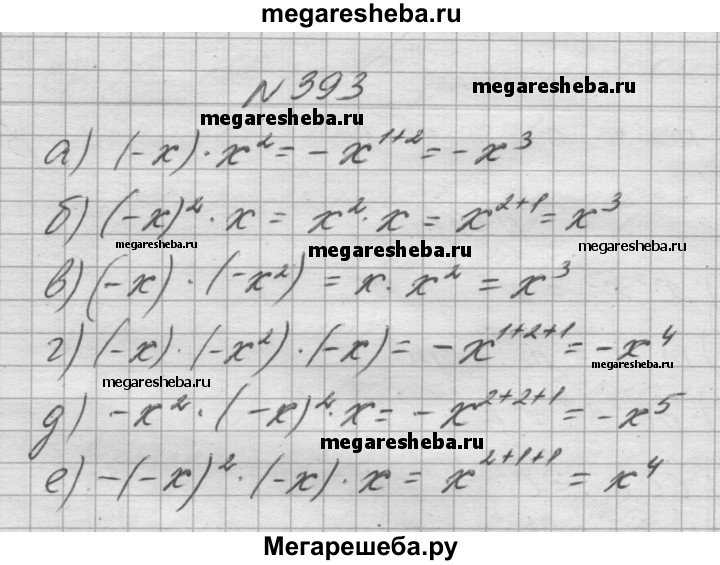 megaresheba.ru
N 393
megaresheba.ru
megaresheba.ru
а) (-x) · x² = - x¹⁺² = - x³
б) (-x)² · x = x² · x = x²⁺¹ = x³
megaresheba.ru
megaresheba.ru
megaresheba.ru
в) (-x) · (-x²) = x · x² = x³
г) (-x) · (-x²) · (-x) = - x¹⁺²⁺¹ = - x⁴
megaresheba.ru
megaresheba.ru
д) - x² · (-x)² · x = - x²⁺²⁺¹ = - x⁵
megaresheba.ru
е) -(-x)² · (-x) · x = x²⁺¹⁺¹ = x⁴
Мегарешеба.ру